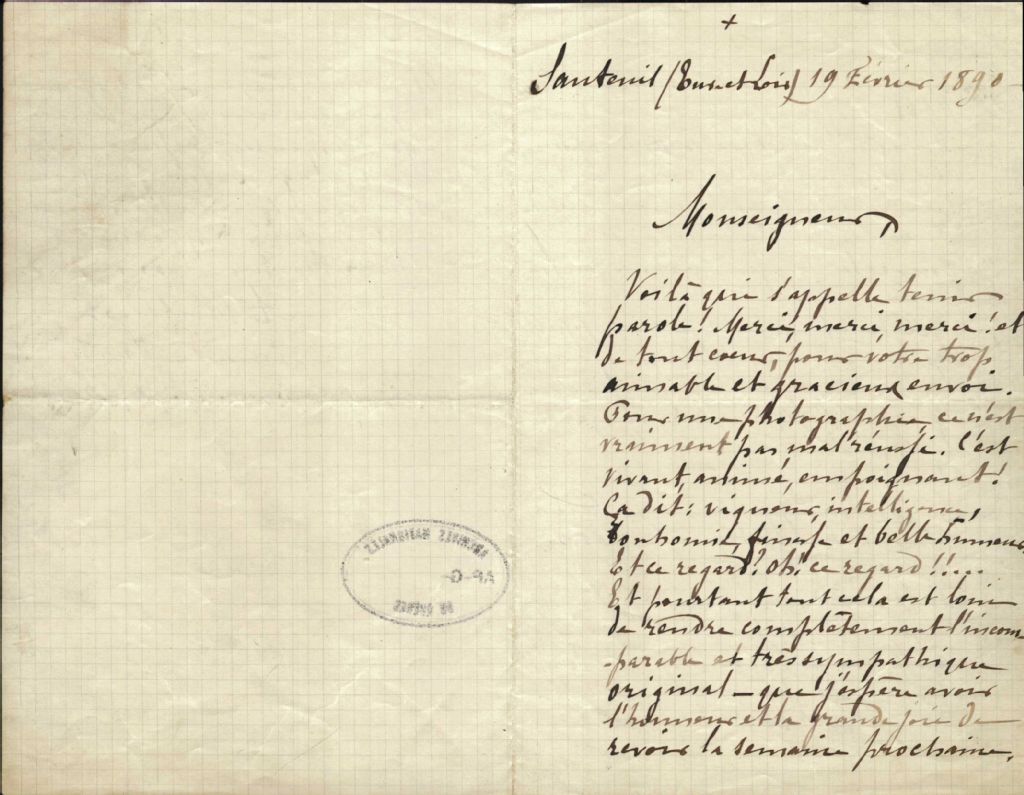 +
Santeuil (Eure et Loir) 19 Février 1890
Monseigneur,
Voilà qui s'appelle tenir
parole! Merci, merci, merci! et
de tout coeur, pour votre trop
aimable et gracieux envoi.
Pour une photographie, ce n'est
vraiment pas mal réussi. C'est
vivant, animé, empoignant!
Ça dit: vigueur, intelligence,
bonhomie, finesse et belle humeur.
Et ce regard! Oh! ce regard!!...
Et pourtant tout cela est loin
de rendre complètement l'incom-
-parable et très sympathique
original – que j'espère avoir
l'honneur et la grande joie de
revoir la semaine prochaine.
ARCHIVES NATIONALES
DE FRANCE